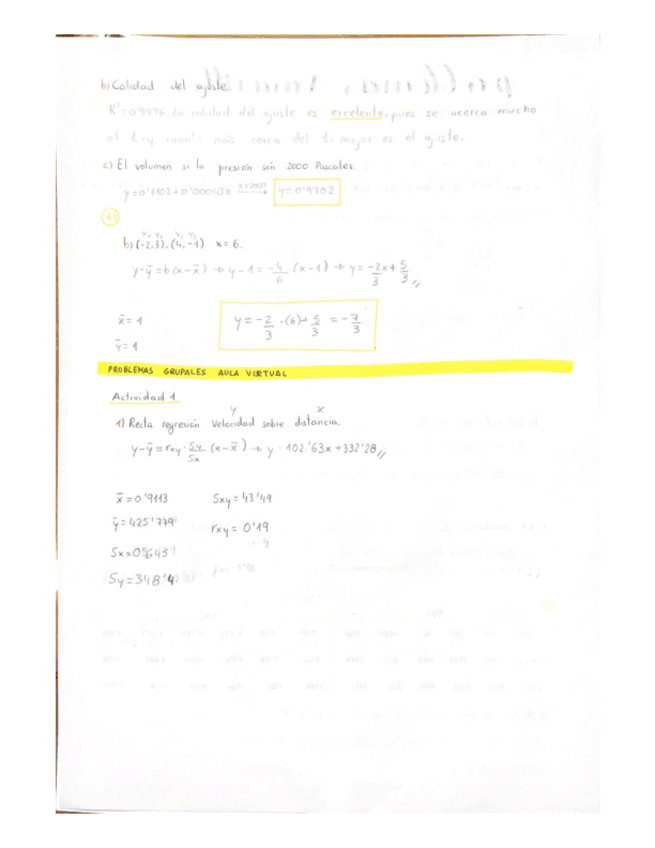 b) Calidad del ajuste.
R²=0'9996. La calidad del ajuste es excelente, pues se acerca mucho
al 1 y cuanto más cerca del 1, mejor es el ajuste.
c) El volumen si la presión son 2000 Pascales.
y=0'1102+0'00043x x=2000 → y=0'9702
11
x₁ y₁ x₂ y₂
b) (-2,3), (4,-1) x=6.
y-ȳ=b(x-x̄) → y-1=-4/6 (x-1) → y=-2x/3+5/3
x̄=1
y=-2/3·(6)+5/3=-7/3
ȳ=1
PROBLEMAS GRUPALES AULA VIRTUAL
Actividad 1
y x
1) Recta regresión Velocidad sobre distancia.
y-ȳ=rxy·Sy/Sx (x-x̄) → y=102'63x+332'28
x̄=0'9113 Sxy=43'49
ȳ=425'779 rxy=0'19
Sx=0'5645
Sy=348'4